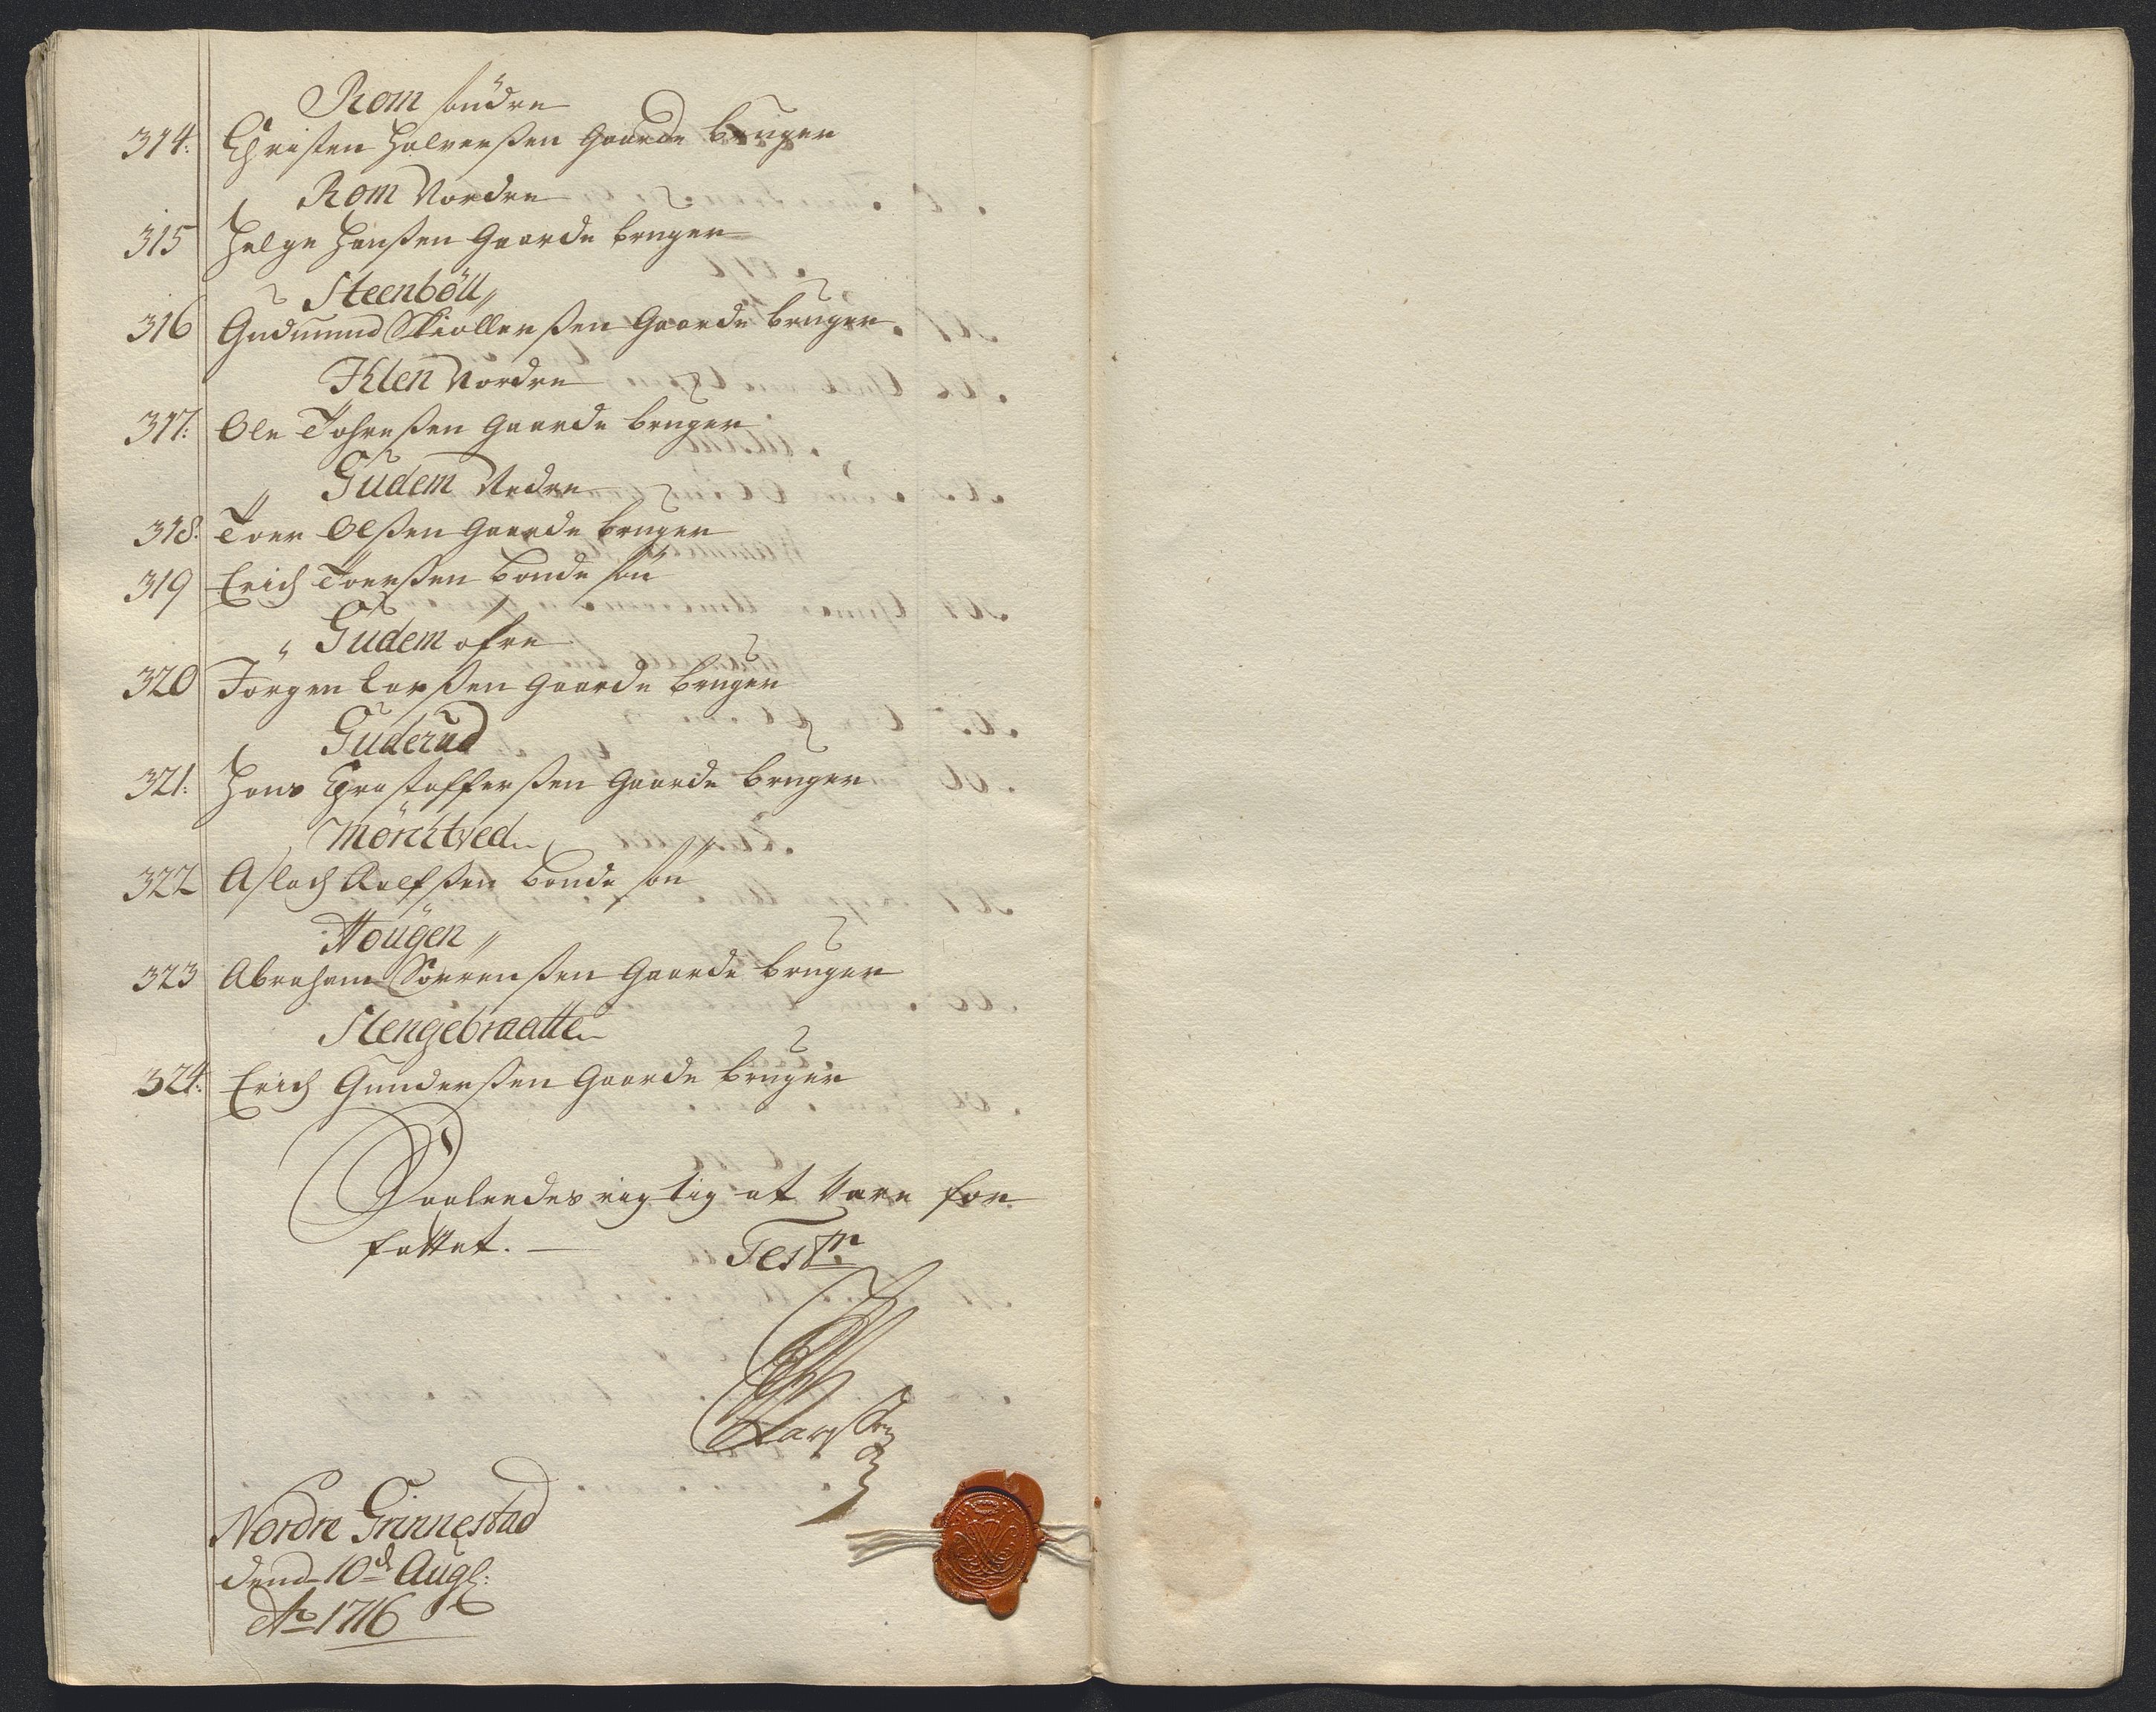 Rom söndre
314: Christen Halverßen Gaarde bruger
Rom Nordre
315 Helge Hanßen Gaarde bruger
Steenböll
316 Gudmund Skiöllerßen Gaarde bruger
Klen Nordre
317: Ole Johnßen Gaarde bruger
Gudem Nedre
318: Toer Olßen Gaarde bruger
319 Erich Toerßen bonde sön
Gudem öfre
320 Jörgen Larßen Gaarde bruger
Guderud
321: Hans Christofferßen Gaarde bruger
Mörchtved
322 Aslach Rolfßen bonde sön
Hougen
323 Abraham Sörrenßen Gaarde bruger
Stengebraatte
324: Erich Gunderßen Gaarde bruger
Saaleedes rigtig at vare for
fattet. Test
Larssen
Nordre Grinnestad
dend 10d Aug:
Ao 1716